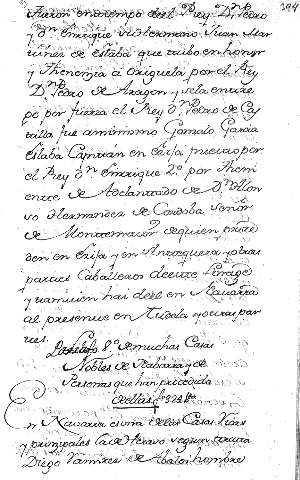 fueron en tiempo del Rey Dn Pedro
y Dn Enrrique su Hermano Juan Mar
tinez de Eslaba que tubo en honor
y Thenencia à Origuela por el Rey
Dn Pedro de Aragon y se la entre
pò por fuerza el Rey Dn Pedro de Cas
tilla fue asimismo Gonzalo Garcia
Eslaba Capitan en Ecija puesto por
el Rey Dn Enrrique 2º por Theni
ente de Adelantado de Dn Allon
so Hernandez de Cordoba señor
de Montemaior de quien proce
den en Ecija y en Antequera y otras
partes Caballeros de este Linage
y tambien hai de el en Navarra
al presente en Tudela y otras par
tes.
8º de muchas Casas
Nobles de Nabarra y de
Personas que han procedido
de ellas fº 324
En Navarra es una de las Casas Viejas
y principales la de segun
Diego Ramirez de Abalos hombre